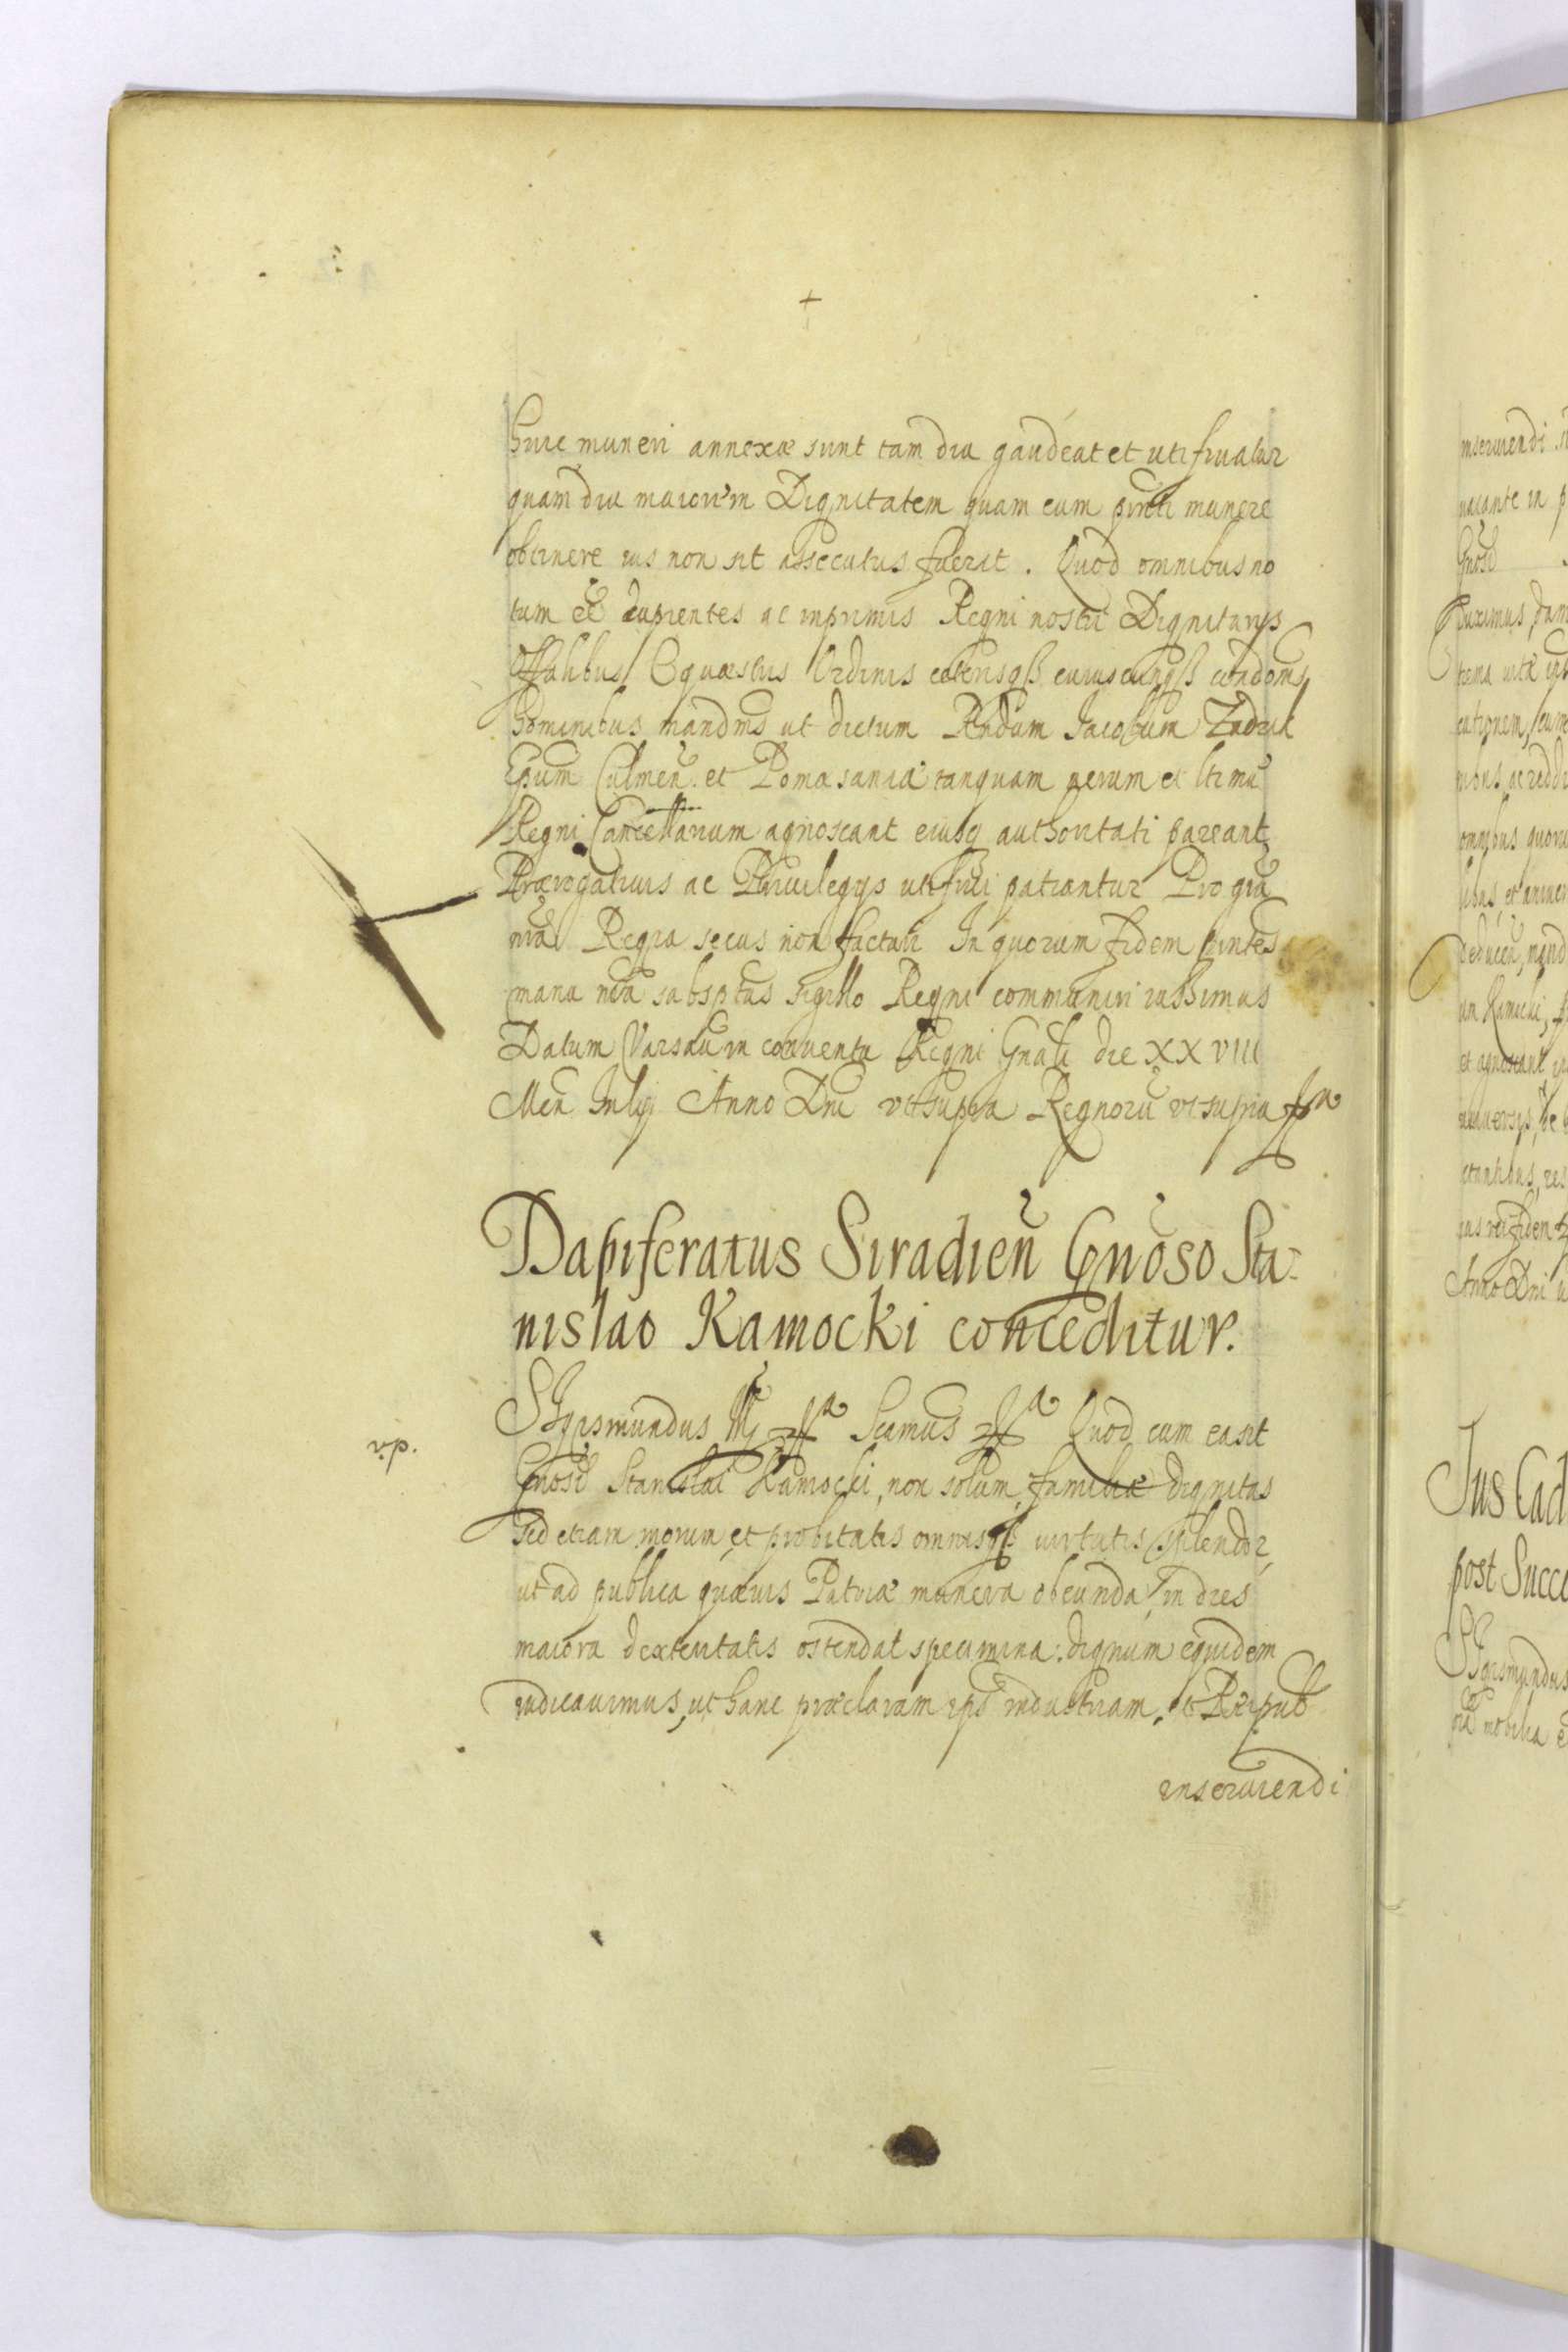 huic muneri annexæ sunt tam diu gaudeat et uti fruatur
quam diu maiorem Dignitatem quam cum pnti munere
obtinere ius non sit assecutus fuerit. Quod omnibus no
tum ēe cupientes ac inprimis Regni nostri Dignitarijs
Offalibus Equestris Ordinis cæterisqß cuiuscunqß condonis
hominibus mandms ut dictum Rndum Jacobum Zadzik
Epum Culmeñ. et Pomasaniæ tanquam verum et ltimū
Regni Cancellarium agnoscant eiusq authoritati pareant
Prærogativis ac Privilegijs uti frui patiantur Pro gra
nra Regia secus non facturi In quorum fidem pntes
manu nra subsptas sigillo Regni communiri iussimus
Datum Varsaū in conventu Regni Gnali die XXVIII
Men Julij Anno Dni ut supra Regnorū ut supra
Dapiferatus Siradieñ Gnoso Sta-
nislao Kamocki conceditur.
SIgismundus IIIs Scamus Quod cum ea sit
Gnosi Stanislai Kamocki, non solum familiæ dignitas
sed etiam morum et probitatis omnisqß virtutis splendor,
ut ad publica quævis Patriæ munera obeunda, in dies
maiora dexteritatis ostendat specimina: dignum equidem
iudicavimus, ut hanc præclaram ips industriam, et Reipub
inserviendi